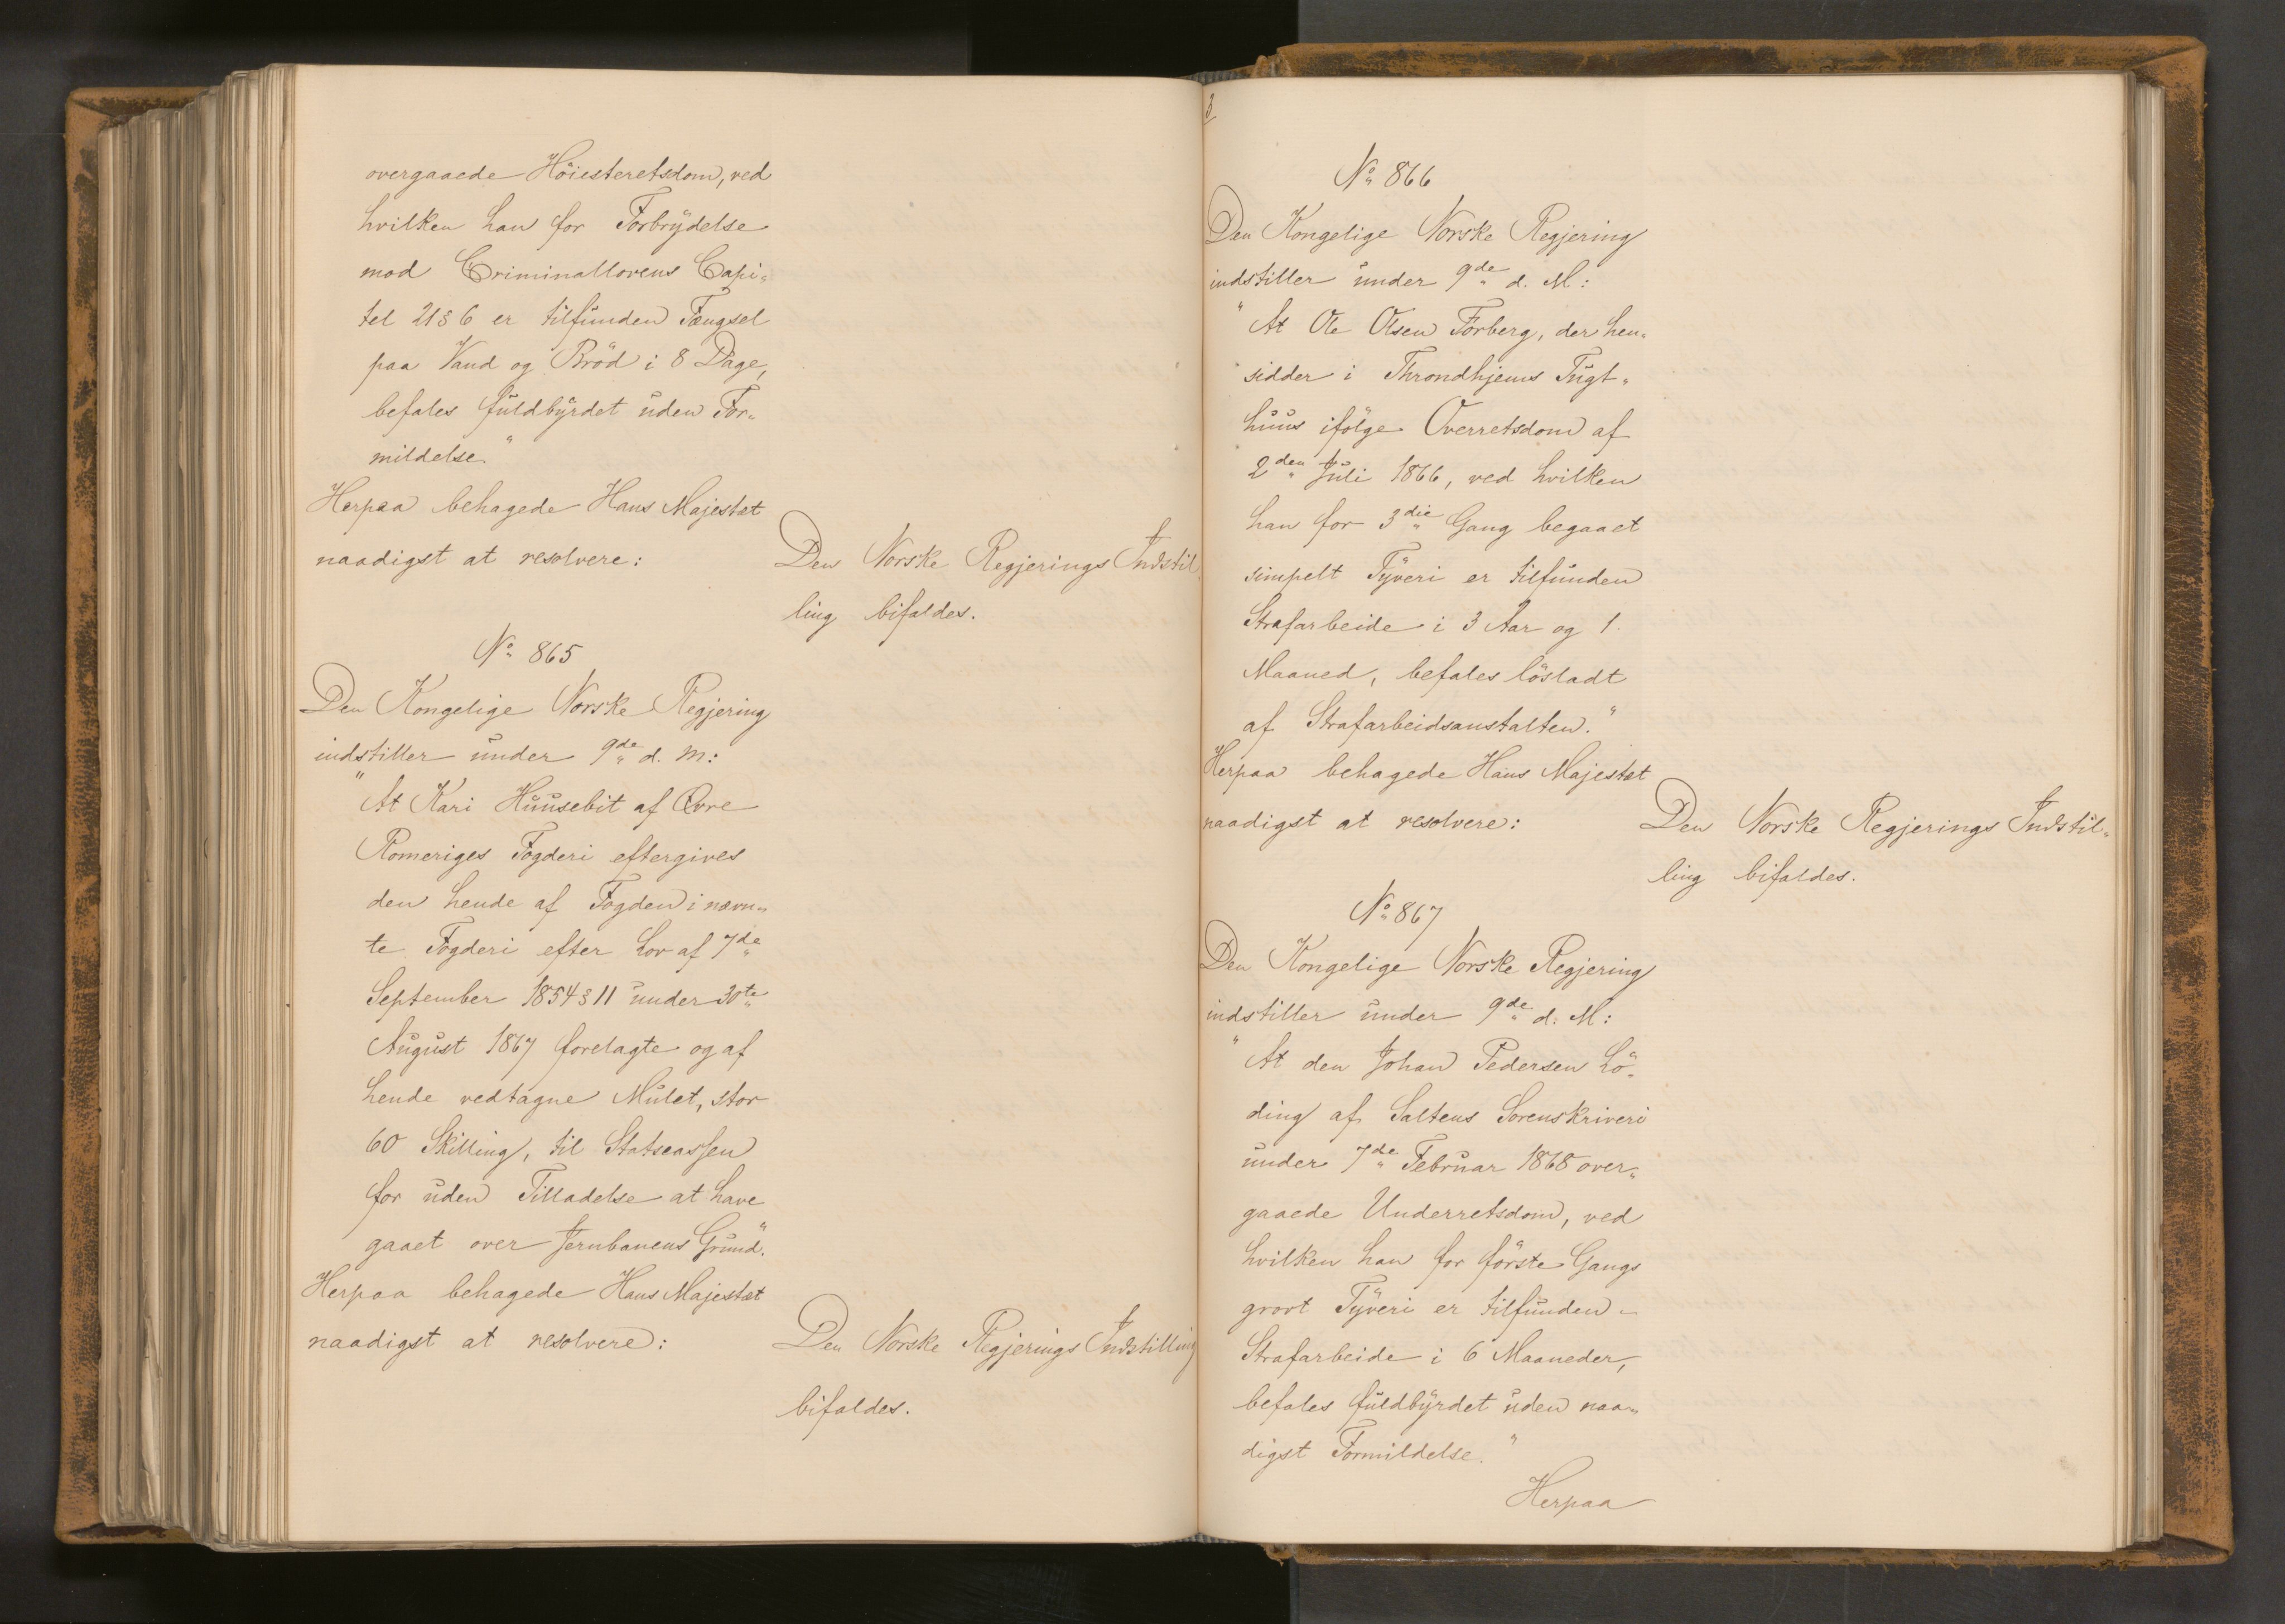 overgaaede Höiesteretsdom, ved
hvilken han for Forbrydelse
mod Criminallovens Capi„
tel 21 § 6 er tilfunden Fængsel
paa Vand og Bröd i 8 Dage,
befales fuldbyrdet uden For„
mildelse."
Herpaa behagede Hans Majestæt
naadigst at resolvere:
Den Norske Regjerings Indstil„
ling bifaldes.
No 865
Den Kongelige Norske Regjering
indstiller under 9de d. M:
"At Kari Huusebit af Øvre
Romeriges Fogderi eftergives
den hende af Fogden i nævn„
te Fogderi efter Lov af 7de
September 1854 § 11 under 30te
August 1867 forelagte og af
hende vedtagne Mulct, stor
60 Skilling, til Statscassen
for uden Tilladelse at have
gaaet over Jernbanens Grund."
Herpaa behagede Hans Majestæt
naadigst at resolvere:
Den Norske Regjerings Indstilling
bifaldes.
No 866
Den Kongelige Norske Regjering
indstiller under 9de d. M:
"At Ole Olsen Forberg, der hen„
sidder i Throndhjems Tugt„
huus ifölge Overretsdom af
2den Juli 1866, ved hvilken
han for 3die Gang begaaet
simpelt Tyveri er tilfunden
Strafarbeide i 3 Aar og 1
Maaned, befales lösladt
af Strafarbeidsanstalten."
Herpaa behagede Hans Majestæt
naadigst at resolvere:
Den Norske Regjerings Indstil„
ling bifaldes.
No 867
Den Kongelige Norske Regjering
indstiller under 9de d. M:
"At den Johan Pedersen Lö„
ding af Saltens Sorenskriveri
under 7de Februar 1868 over„
gaaede Underretsdom, ved
hvilken han for förste Gangs
grovt Tyveri er tilfunden
Strafarbeide i 6 Maaneder,
befales fuldbyrdet uden naa„
digst Formildelse."
Herpaa